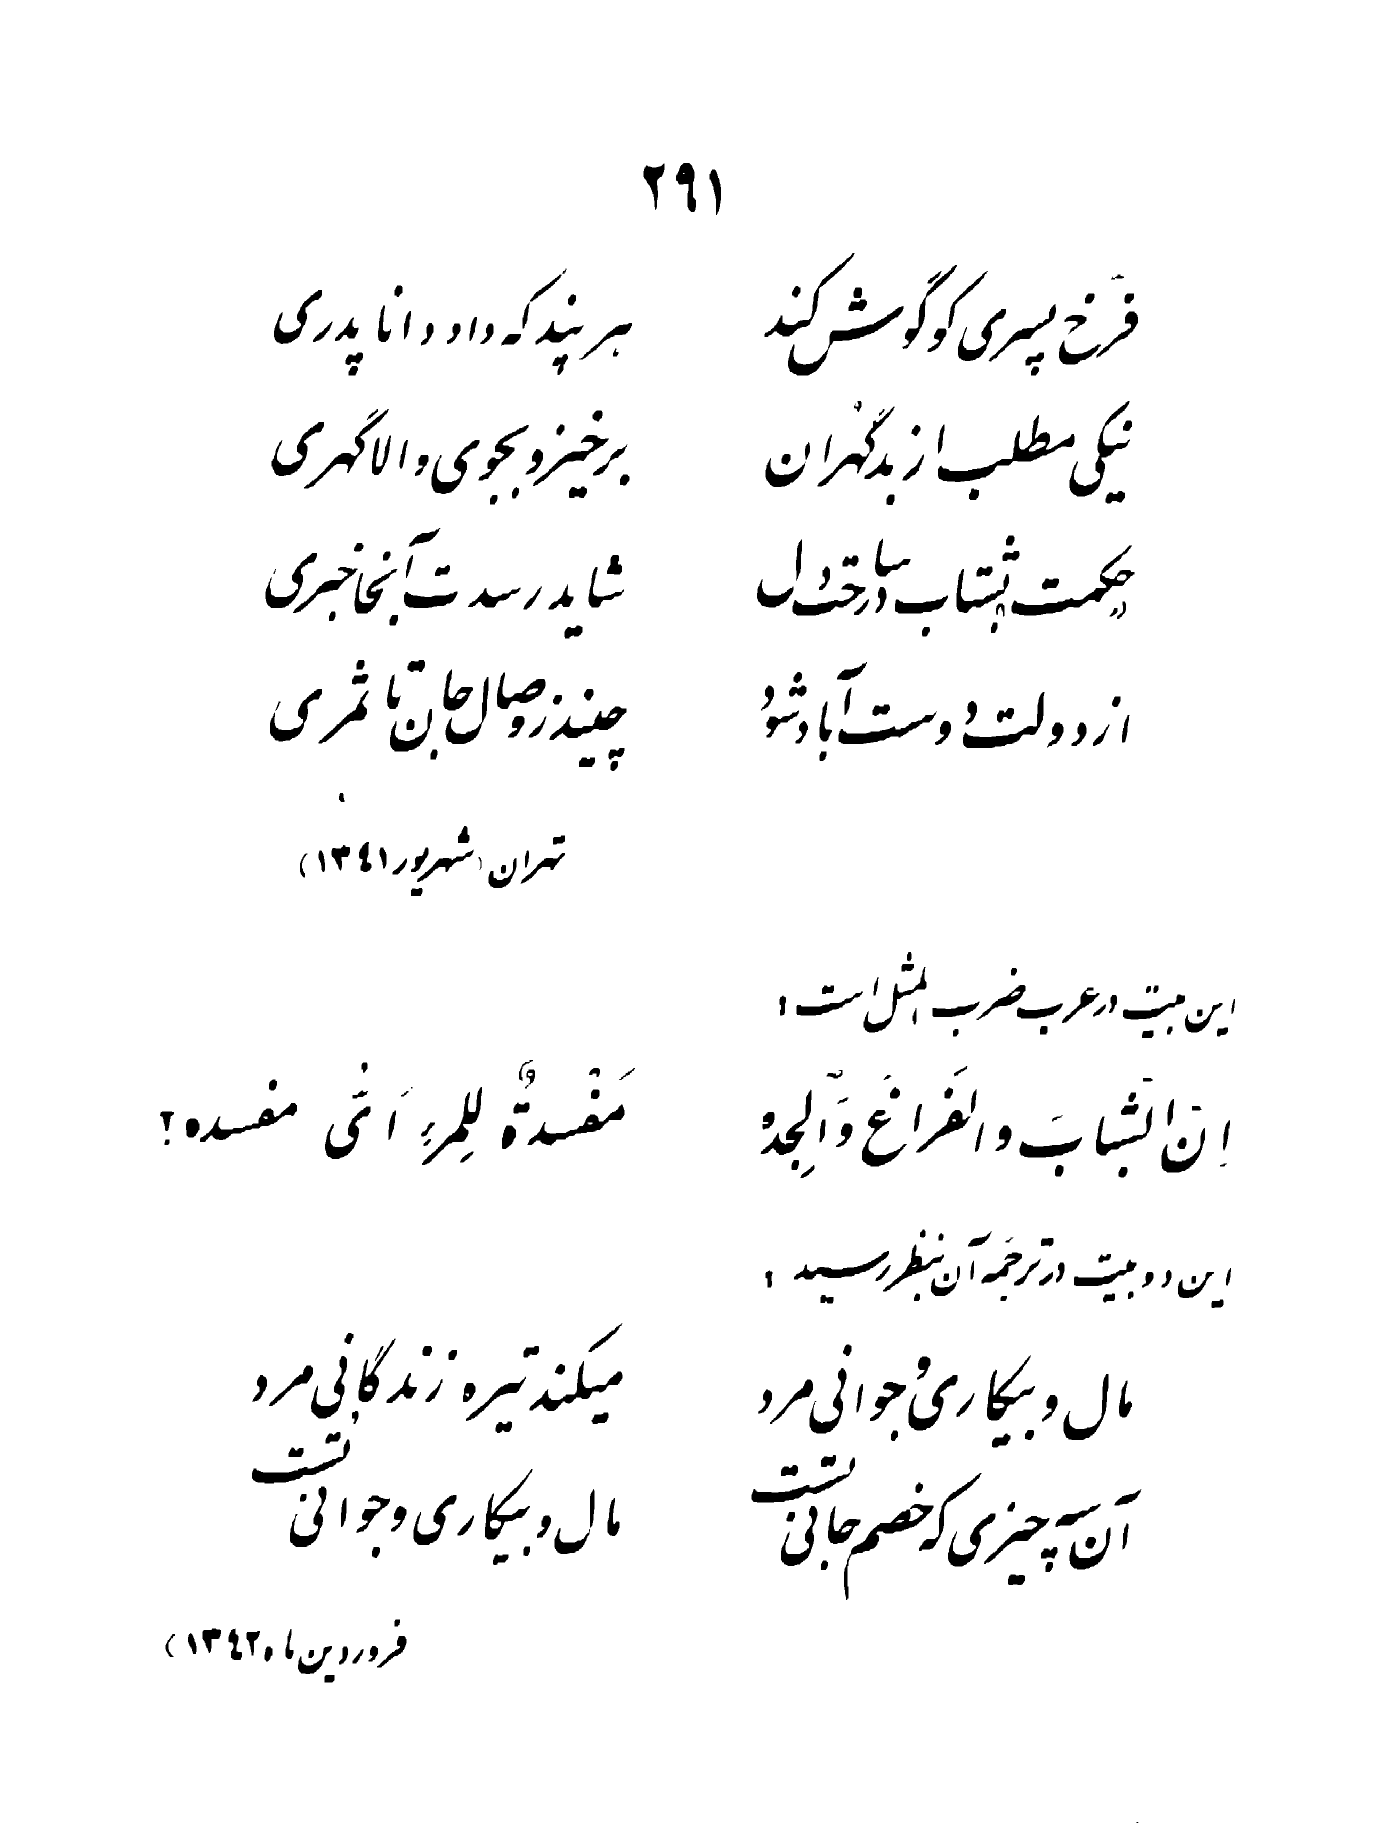 ۲۹۱
فرّخ پسری کو گوش کند هر پند که داد دانا پدری
نیکی مطلب از بدگهران برخیز و بجوی والاگهری
حکمت بشتاب در ساحت دل شاید رسدت آنجا خبری
از دولت دوست آباد شود چیند ز وصال جان تا ثمری
تهران (شهریور ۱۳۴۱)
این بیت در عرب ضرب المثل است:
اِنّ الشّبابَ والفَراغَ وَالجِده مَفْسدةٌ لِلمرءِ اَیُّ مفسده؟
این دو بیت در ترجَمه آن بنظر رسید:
مال و بیکاری و جوانی مرد میکند تیره زندگانی مرد
آن سه چیزی که خصم جانی تست مال و بیکاری و جوانی تست
فروردین ماه ۱۳۴۲)